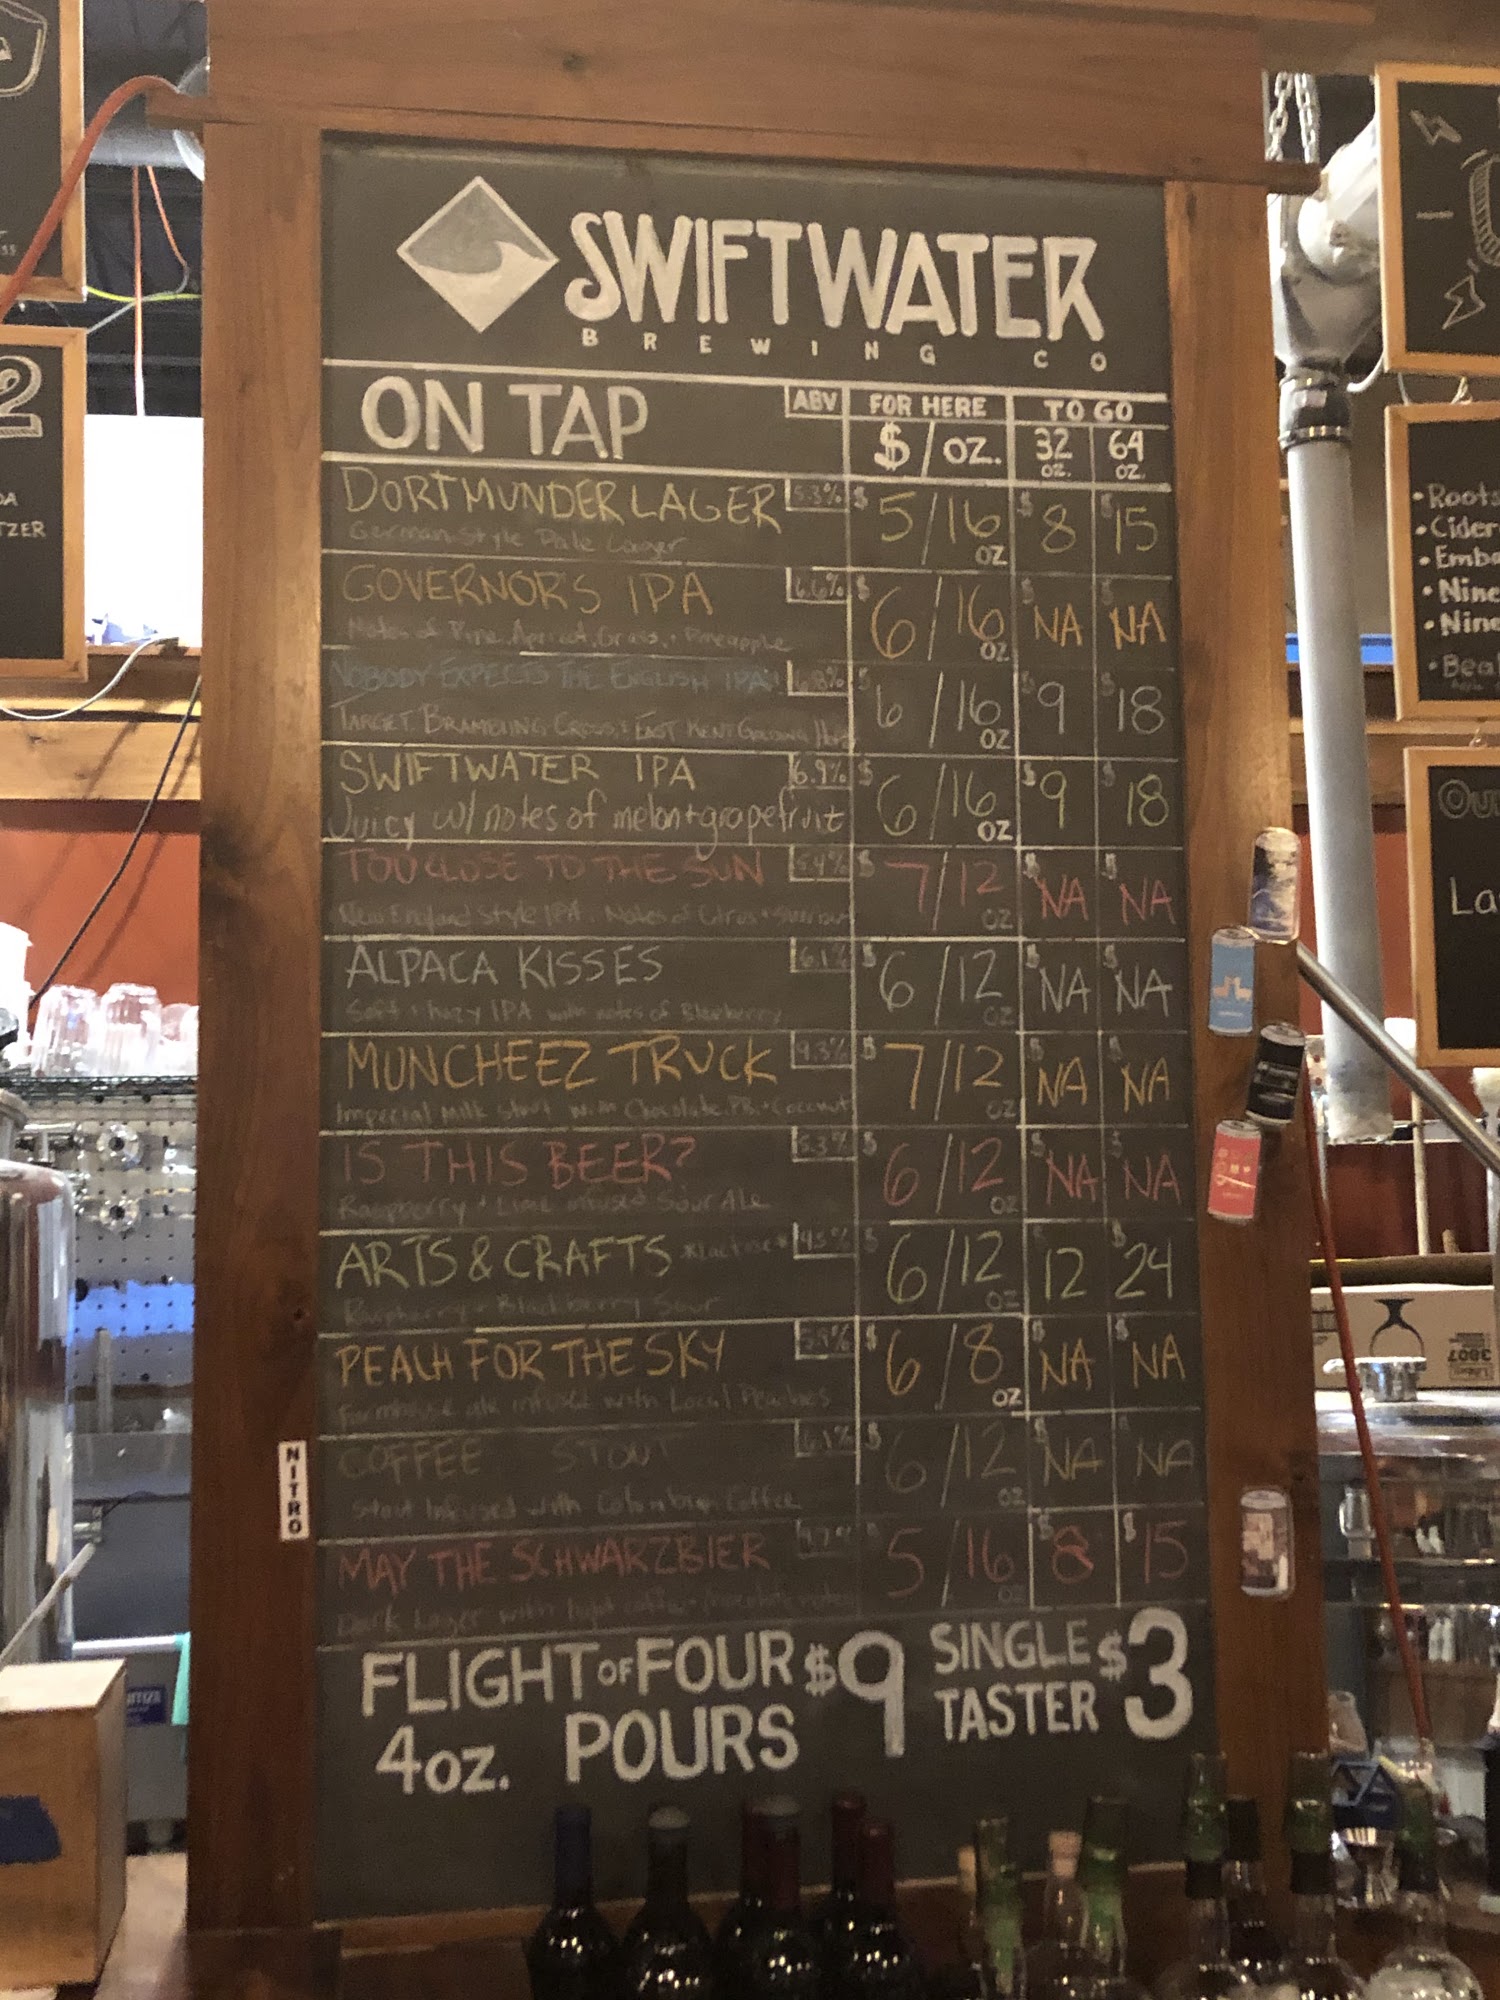 SWIFTWATER
BREWING CO
ON TAP ABV FOR HERE TO GO
$ / OZ. 32 OZ. 64 OZ.
DORTMUNDER LAGER 5.3% $ 5/16 OZ $ 8 $ 15
German Style Pale Lager
GOVERNOR'S IPA 6.6% $ 6/16 OZ $ NA $ NA
Notes of Pine, Apricot, Grass, + Pineapple
NOBODY EXPECTS THE ENGLISH IPA! 6.8% $ 6/16 OZ $ 9 $ 18
TARGET, BRAMBLING CROSS, + EAST KENT GOLDING Hops
SWIFTWATER IPA 6.9% $ 6/16 OZ $ 9 $ 18
Juicy w/ notes of melon + grapefruit
TOO CLOSE TO THE SUN 5.4% $ 7/12 OZ $ NA $ NA
New England Style IPA. Notes of Citrus +
ALPACA KISSES 6.1% $ 6/12 OZ $ NA $ NA
Soft + hazy IPA with notes of Blueberry
MUNCHEEZ TRUCK 9.3% $ 7/12 OZ $ NA $ NA
Imperial Milk Stout with Chocolate, PB, + Coconut
IS THIS BEER? 5.3% $ 6/12 OZ $ NA $ NA
Raspberry + Lime infused Sour Ale
ARTS & CRAFTS *lactose* 4.5% $ 6/12 OZ 12 $ 24
Raspberry + Blackberry Sour
PEACH FOR THE SKY 5.9% $ 6/8 OZ $ NA $ NA
Farmhouse ale infused with Local Peaches
NITRO
COFFEE STOUT 6.1% $ 6/12 OZ $ NA NA
Stout Infused with Colombian Coffee
MAY THE SCHWARZBIER 4.7% 5/16 OZ $ 8 $ 15
Dark Lager with light coffee + chocolate notes
FLIGHT OF FOUR $9 SINGLE $3
4oz. POURS TASTER
2
TZER
Roots
Cider
Nine
Nine
La
3807